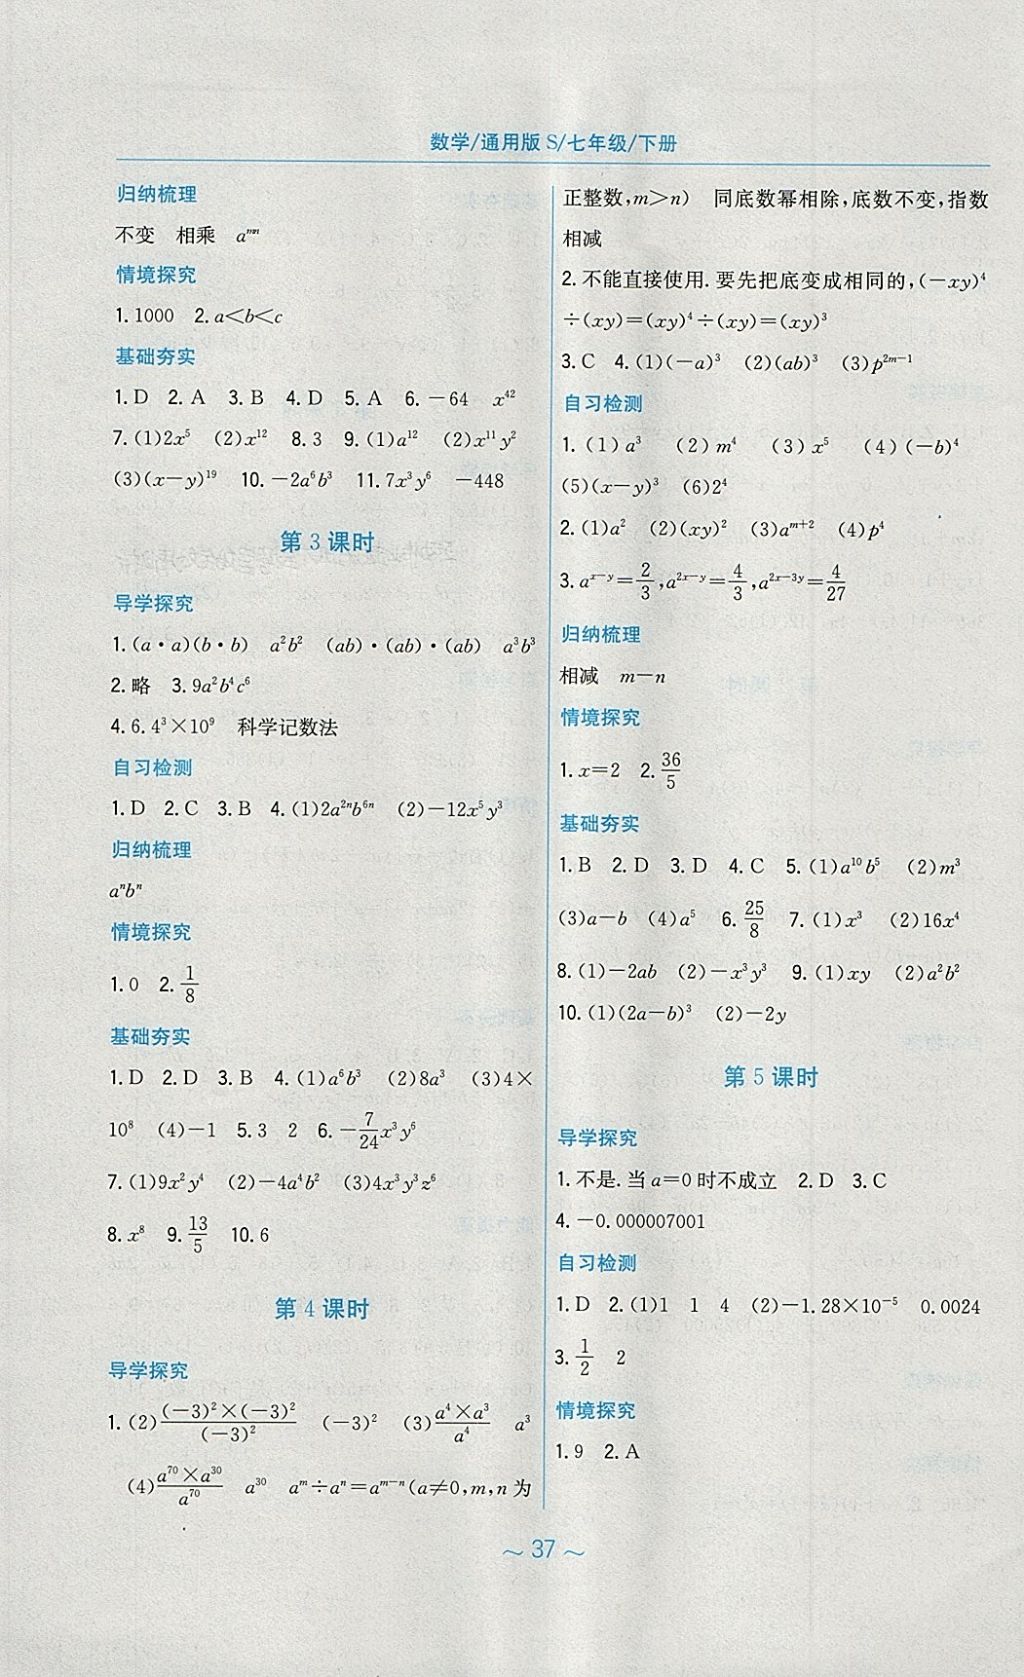 数学/通用版 S/七年级/下册
归纳梳理
不变 相乘 aᵐⁿ
情境探究
1. 1000 2. a<b<c
基础夯实
1. D 2. A 3. B 4. D 5. A 6. －64 x⁴²
7. (1)2x⁵ (2)x¹² 8. 3 9. (1)a¹² (2)x¹¹y²
(3)(x－y)¹⁹ 10. －2a⁶b³ 11. 7x³y⁶ －448
第 3 课时
导学探究
1. (a·a)(b·b) a²b² (ab)·(ab)·(ab) a³b³
2. 略 3. 9a²b⁴c⁶
4. 6.4³×10⁹ 科学记数法
自习检测
1. D 2. C 3. B 4. (1)2a²ⁿb⁶ⁿ (2)－12x⁵y³
归纳梳理
aⁿbⁿ
情境探究
1. 0 2. 1/8
基础夯实
1. D 2. D 3. B 4. (1)a⁶b³ (2)8a³ (3)4×
10⁸ (4)－1 5. 3 2 6. －7/24x³y⁶
7. (1)9x²y⁴ (2)－4a⁴b² (3)4x³y³z⁶
8. x⁸ 9. 13/5 10. 6
第 4 课时
导学探究
1. (2)(－3)²×(－3)²/(－3)² (－3)² (3)a⁴×a³/a⁴ a³
(4)a⁷⁰×a³⁰/a⁷⁰ a³⁰ aᵐ÷aⁿ=aᵐ⁻ⁿ(a≠0,m,n为
正整数,m>n) 同底数幂相除,底数不变,指数
相减
2. 不能直接使用. 要先把底变成相同的,(－xy)⁴
÷(xy)=(xy)⁴÷(xy)=(xy)³
3. C 4. (1)(－a)³ (2)(ab)³ (3)p²ᵐ⁻¹
自习检测
1. (1) a³ (2) m⁴ (3) x⁵ (4) (－b)⁴
(5)(x－y)³ (6)2⁴
2. (1)a² (2)(xy)² (3)aᵐ⁺² (4)p⁴
3. aˣ⁻ʸ=2/3,a²ˣ⁻ʸ=4/3,a²ˣ⁻³ʸ=4/27
归纳梳理
相减 m－n
情境探究
1. x=2 2. 36/5
基础夯实
1. B 2. D 3. D 4. C 5. (1)a¹⁰b⁵ (2)m³
(3)a－b (4)a⁵ 6. 25/8 7. (1)x³ (2)16x⁴
8. (1)－2ab (2)－x³y³ 9. (1)xy (2)a²b²
10. (1)(2a－b)³ (2)－2y
第 5 课时
导学探究
1. 不是. 当 a=0 时不成立 2. D 3. C
4. －0.000007001
自习检测
1. D 2. (1)1 1 4 (2)－1.28×10⁻⁵ 0.0024
3. 1/2 2
情境探究
1. 9 2. A
～ 37 ～